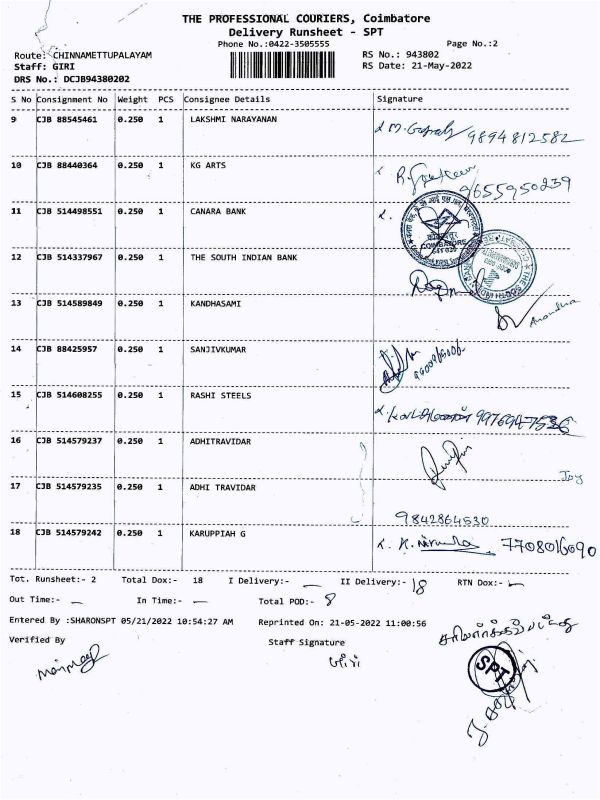 THE PROFESSIONAL COURIERS, Coimbatore
Delivery Runsheet - SPT
Phone No.:0422-3505555
Page No.:2
Route: CHINNAMETTUPALAYAM
RS No.: 943802
Staff: GIRI
RS Date: 21-May-2022
DRS No.: DCJB94380202
S No Consignment No Weight PCS Consignee Details Signature
9 CJB 88545461 0.250 1 LAKSHMI NARAYANAN
9894812582
10 CJB 88440364 0.250 1 KG ARTS
9655950239
11 CJB 514498551 0.250 1 CANARA BANK
COIMBATORE
12 CJB 514337967 0.250 1 THE SOUTH INDIAN BANK
13 CJB 514589849 0.250 1 KANDHASAMI
14 CJB 88425957 0.250 1 SANJIVKUMAR
15 CJB 514608255 0.250 1 RASHI STEELS
16 CJB 514579237 0.250 1 ADHITRAVIDAR
Joy
17 CJB 514579235 0.250 1 ADHI TRAVIDAR
9842864530
18 CJB 514579242 0.250 1 KARUPPIAH G
7708016090
Tot. Runsheet:- 2 Total Dox:- 18 I Delivery:- — II Delivery:- 18 RTN Dox:- —
Out Time:- — In Time:- — Total POD:- 8
Entered By :SHARONSPT 05/21/2022 10:54:27 AM Reprinted On: 21-05-2022 11:00:56
Verified By Staff Signature
SPT